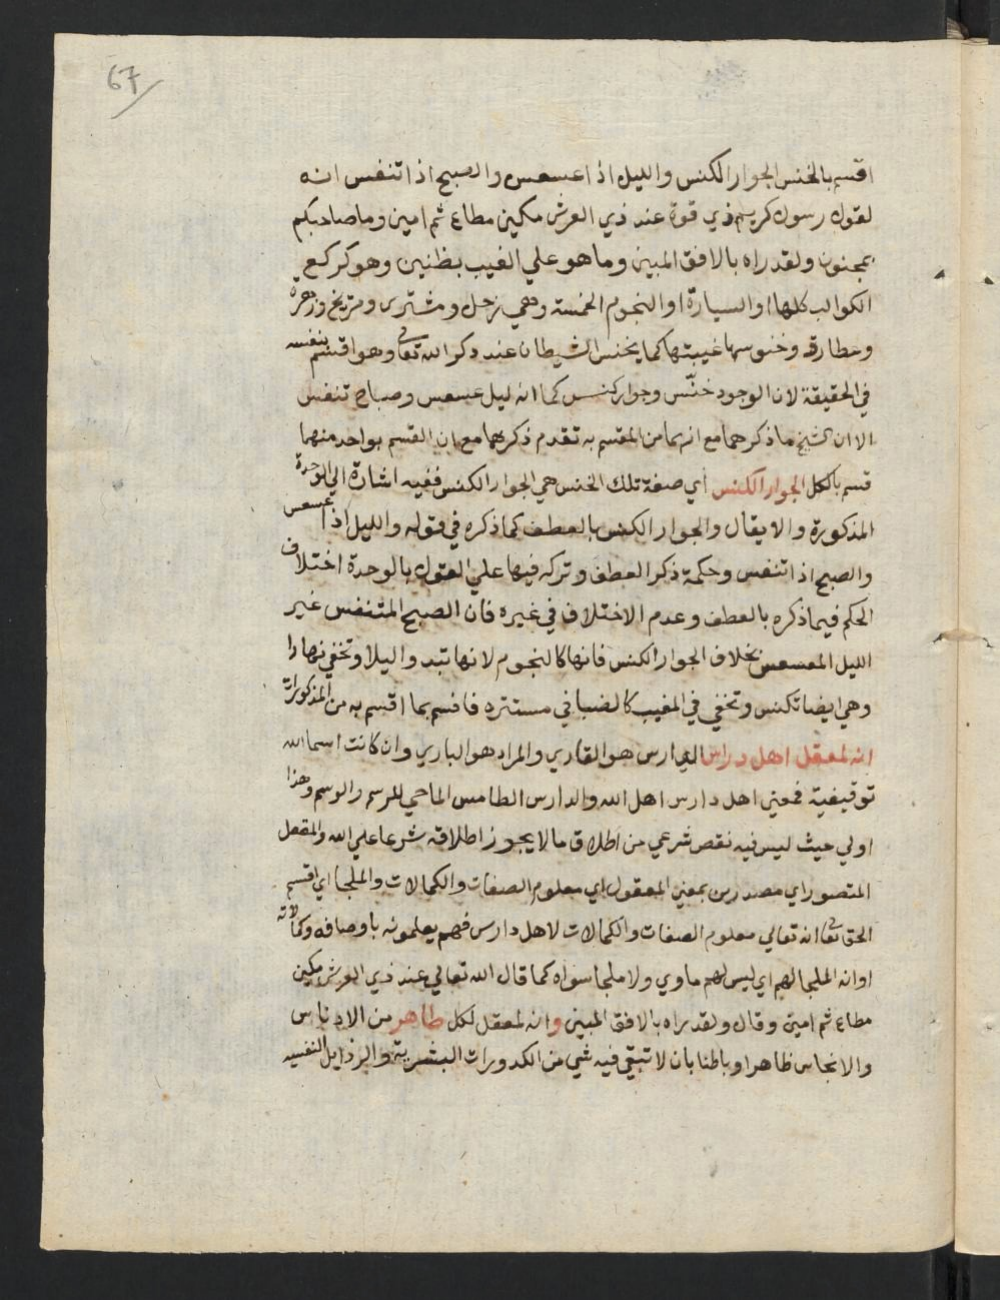 67
اقسم بالخنس الجوار الكنس والليل اذا عسعس والصبح اذا تنفس انه
لقول رسول كريم ذي قوة عند ذي العرش مكين مطاع ثم امين وما صاحبكم
بمجنون ولقد راه بالافق المبين وما هو علي الغيب بظنين وهو كركع
الكواكب كلها او السيارة او النجوم الخمسة وهي زحل ومشتري ومريخ وزهرة
وعطارد وخنوسها غيبتها كما يخنس الشيطان عند ذكر الله تعالى وهو اقسم بنفسه
في الحقيقة لان الوجود خنّس وجوار كنس كما انه ليل عسعس وصباح تنفس
الا ان الشيخ ما ذكرهما مع انهما من المقسم به تقدم ذكرهما مع ان القسم بواحد منهما
قسم بالكل الجوار الكنس اي صفة تلك الخنس هي الجوار الكنس ففيه اشارة الي الوحدة
المذكورة والا يقال والجوار الكنس بالعطف كما ذكره في قوله والليل اذا عسعس
والصبح اذا تنفس وحكمة ذكر العطف وتركه فيها علي القول بالوحدة اختلاف
الحكم فيما ذكره بالعطف وعدم الاختلاف في غيره فان الصبح المتنفس غير
الليل المعسعس بخلاف الجوار الكنس فانها كالنجوم لانها تبدو اليلا وتخفي نهارا
وهي ايضا تكنس وتخفي في المغيب كالضبا في مستترد فاقسم بما اقسم به من المذكورات
انه لمعقل اهل دراس الدارس هو القاري والمراد هو الباري وان كانت اسما الله
توقيفية فمعني اهل دارس اهل الله والدارس الطامس الماحي للرسم والوسم وهذا
اولي حيث ليس فيه نقص شرعي من اطلاق ما لا يجوز اطلاقه شرعا علي الله والمقعل
المتصور اي مصدرين بمعني المعقول اي معلوم الصفات والكمالات والملجا اي اقسم
الحق تعالى انه تعالي معلوم الصفات والكمالات لاهل دارس فهم يعلمونه باوصافه وكمالاته
او انه الملجا لهم اي ليس لهم ماوي ولا ملجا سواه كما قال الله تعالي عند ذي العرش مكين
مطاع ثم امين وقال ولقد راه بالافق المبين وانه لمعقل لكل طاهر من الادناس
والانجاس ظاهرا وباطنا بان لا تبقي فيه شي من الكدورات البشرية والرذايل النفسيه